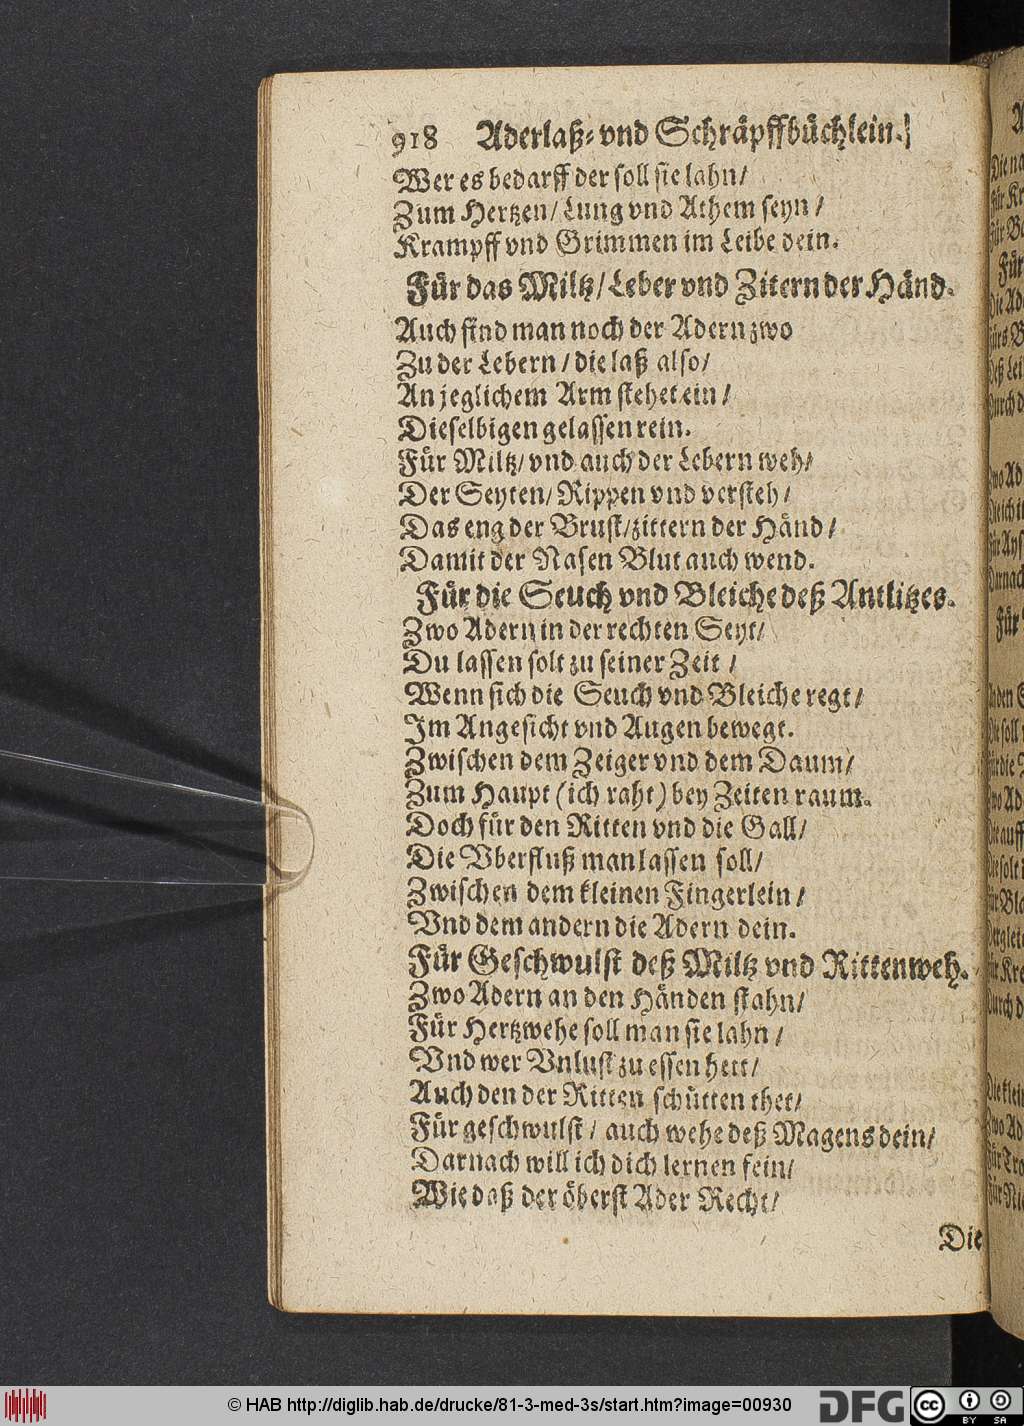 918 Aderlaß- vnd Schräpffbüchlein.
Wer es bedarff der soll sie lahn/
Zum Hertzen/ Lung vnd Athem seyn/
Krampff vnd Grimmen im Leibe dein.
Für das Miltz/ Leber vnd Zitern der Händ.
Auch sind man noch der Adern zwo
Zu der Lebern/ die laß also/
An jeglichem Arm stehet ein/
Dieselbigen gelassen rein.
Für Miltz/ vnd auch der Lebern weh/
Der Seyten/ Rippen vnd versteh/
Das eng der Brust/ zittern der Händ/
Damit der Nasen Blut auch wend.
Für die Seuch vnd Bleiche deß Antlitzes.
Zwo Adern in der rechten Seyt/
Du lassen solt zu seiner Zeit/
Wenn sich die Seuch vnd Bleiche regt/
Im Angesicht vnd Augen bewegt.
Zwischen dem Zeiger vnd dem Daum/
Zum Haupt (ich raht) bey Zeiten raum.
Doch für den Ritten vnd die Gall/
Die Vberfluß man lassen soll/
Zwischen dem kleinen Fingerlein/
Vnd dem andern die Adern dein.
Für Geschwulst deß Miltz vnd Rittenweh.
Zwo Adern an den Händen stahn/
Für Hertzwehe soll man sie lahn/
Vnd wer Vnlust zu essen hett/
Auch den der Ritten schütten thet/
Für geschwulst/ auch wehe deß Magens dein/
Darnach will ich dich lernen fein/
Wie daß der öberst Ader Recht/
Die
© HAB http://diglib.hab.de/drucke/81-3-med-3s/start.htm?image=00930
DFG
cc BY SA